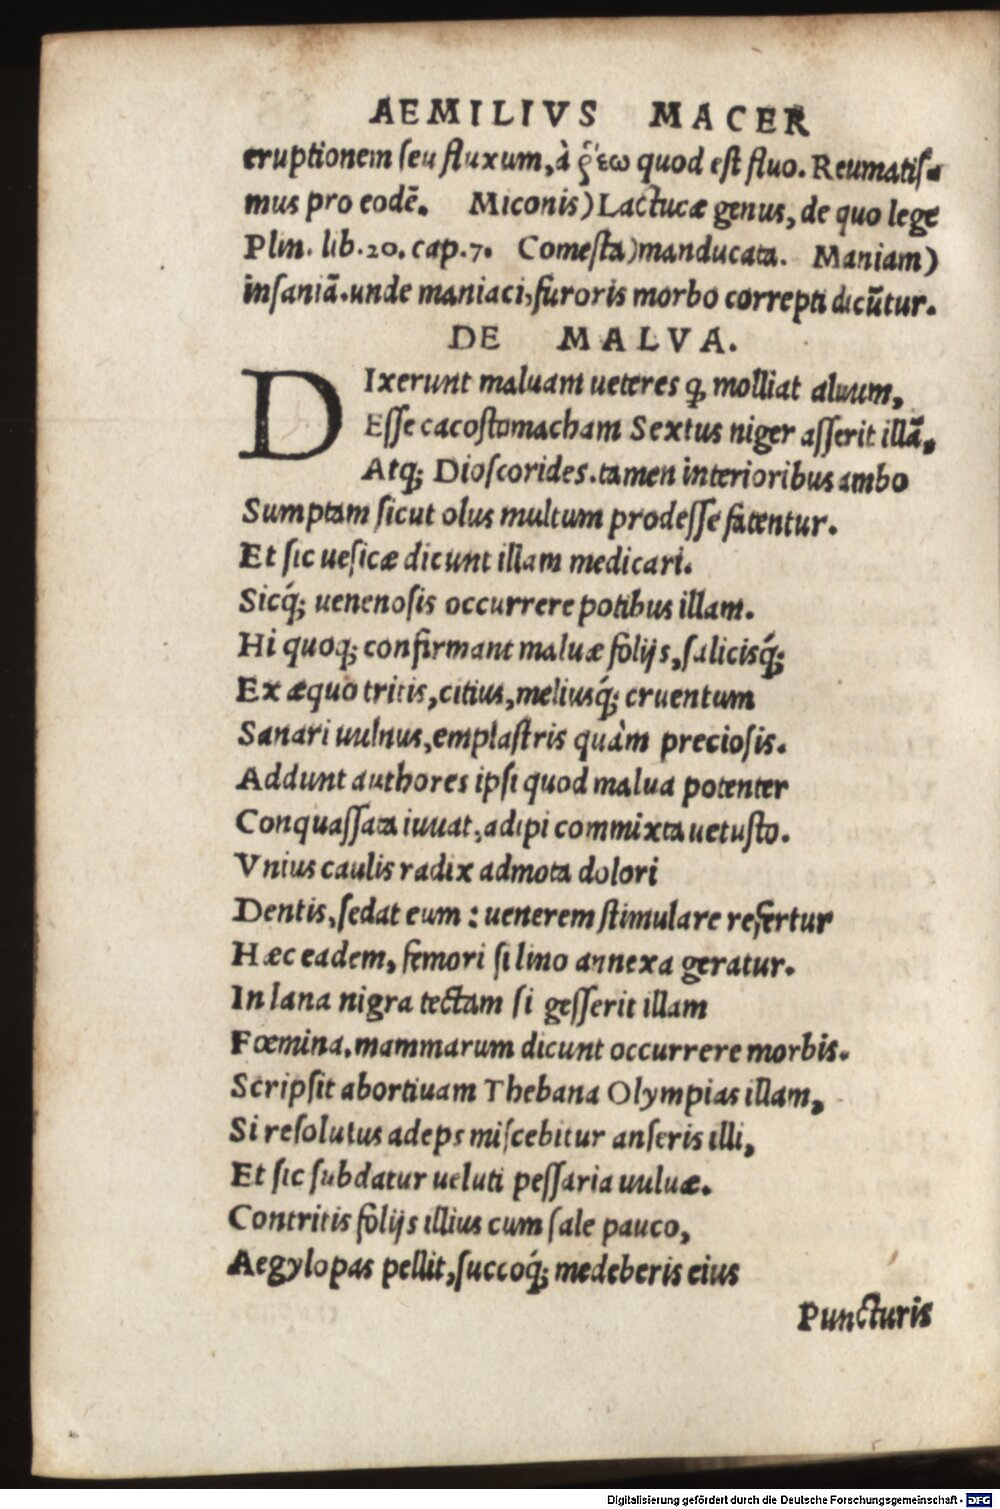 AEMILIVS MACER
eruptionem seu fluxum, à ῥέω quod est fluo. Reumatis-
mus pro eodē. Miconis) Lactucæ genus, de quo lege
Plin. lib. 20. cap. 7. Comesta) manducata. Maniam)
insaniā. unde maniaci, furoris morbo correpti dicūtur.
DE MALVA.
DIxerunt maluam ueteres ꝙ molliat aluum,
Esse cacostomacham Sextus niger asserit illā,
Atq; Dioscorides. tamen interioribus ambo
Sumptam sicut olus multum prodesse fatentur.
Et sic uesicæ dicunt illam medicari.
Sicq́; uenenosis occurrere potibus illam.
Hi quoq; confirmant maluæ folijs, salicisq́;
Ex æquo tritis, citius, meliusq́; cruentum
Sanari uulnus, emplastris quàm preciosis.
Addunt authores ipsi quod malua potenter
Conquassata iuuat, adipi commixta uetusto.
Vnius caulis radix admota dolori
Dentis, sedat eum: uenerem stimulare refertur
Hæc eadem, femori si lino annexa geratur.
In lana nigra tectam si gesserit illam
Fœmina, mammarum dicunt occurrere morbis.
Scripsit abortiuam Thebana Olympias illam,
Si resolutus adeps miscebitur anseris illi,
Et sic subdatur ueluti pessaria uuluæ.
Contritis folijs illius cum sale pauco,
Aegylopas pellit, succoq́; medeberis eius
Puncturis
Digitalisierung gefördert durch die Deutsche Forschungsgemeinschaft - DFG